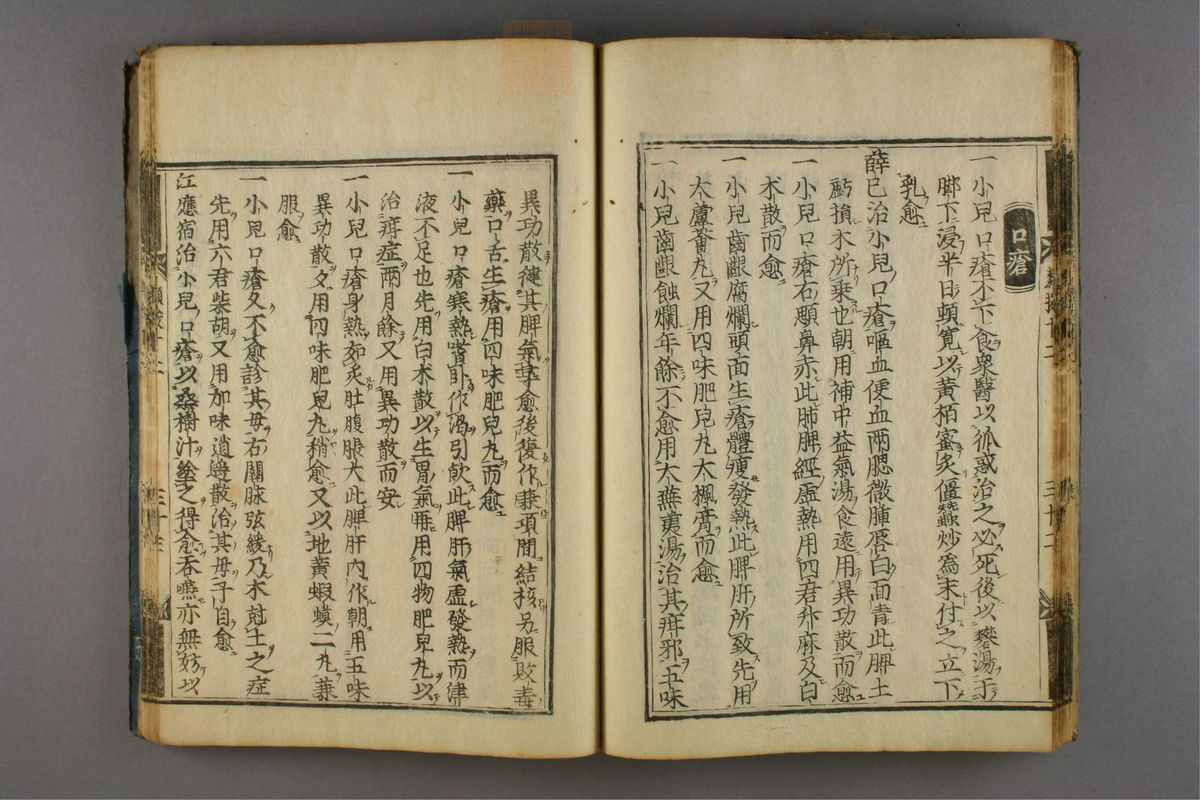 口瘡
一小兒口瘡不下食衆醫以狐惑治之必死後以礬湯于
脚下浸半日頓寛以黄栢蜜炙僵蠶炒為末付之立下
乳愈
薛已治小兒口瘡嘔血便血兩腮微腫唇白面青此脾土
虧損木所乗也朝用補中益氣湯食遠用異功散而愈
一小兒口瘡右顋鼻赤此肺脾經虛熱用四君升麻及白
术散而愈
一小兒齒齦腐爛頭面生瘡體瘦發熱此脾肝所致先用
大蘆薈丸又用四味肥兒丸大楓膏而愈
一小兒齒齦蝕爛年餘不愈用大蕪荑湯治其疳邪五味
異功散健其脾氣尋愈後復作兼項間結核另服敗毒
藥口舌生瘡用四味肥兒丸而愈
一小兒口瘡寒熱嗜卧作渴引飲此脾肝氣虛發熱而津
液不足也先用白术散以生胃氣再用四物肥兒丸以
治疳症兩月餘又用異功散而安
一小兒口瘡身熱如炙肚腹脹大此脾肝内作朝用五味
異功散夕用四味肥兒丸稍愈又以地黄蝦蟆二丸兼
服愈
一小兒口瘡久不愈診其母右關脉弦緩乃木尅土之症
先用六君柴胡又用加味逍遙散治其母子自愈
江應宿治小兒口瘡以桑樹汁塗之得愈吞嚥亦無妨以